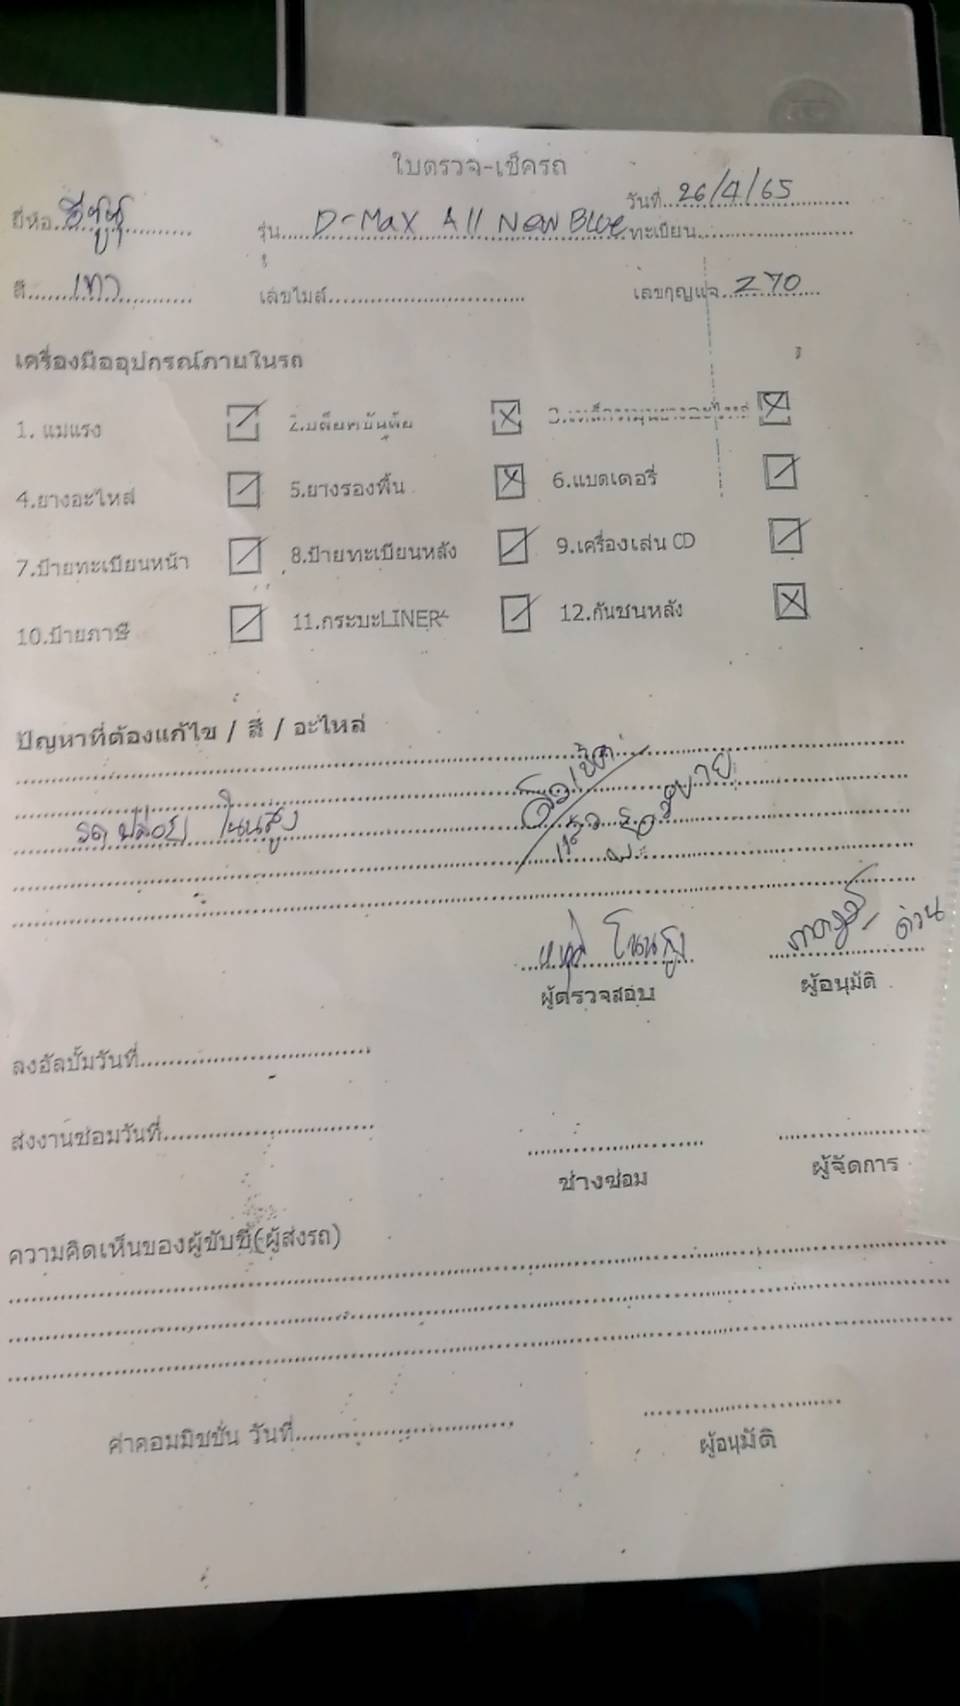 ใบตรวจ-เช็ครถ
วันที่ 26/4/65
ยี่ห้อ อีซูซุ รุ่น D-Max All New Blue ทะเบียน
สี เทา เลขไมล์ เลขกุญแจ Z 70
เครื่องมืออุปกรณ์ภายในรถ
1. แม่แรง 2. 3.
4.ยางอะไหล่ 5.ยางรองพื้น 6.แบตเตอรี่
7.ป้ายทะเบียนหน้า 8.ป้ายทะเบียนหลัง 9.เครื่องเล่น CD
10.ป้ายภาษี 11.กระบะLINER 12.กันชนหลัง
ปัญหาที่ต้องแก้ไข / สี / อะไหล่
รถปล่อย โนนสูง
โนนสูง ด่วน
ผู้ตรวจสอบ ผู้อนุมัติ
ลงอัลบั้มวันที่
ส่งงานซ่อมวันที่
ช่างซ่อม ผู้จัดการ
ความคิดเห็นของผู้ขับขี่(ผู้ส่งรถ)
ค่าคอมมิชชั่น วันที่
ผู้อนุมัติ